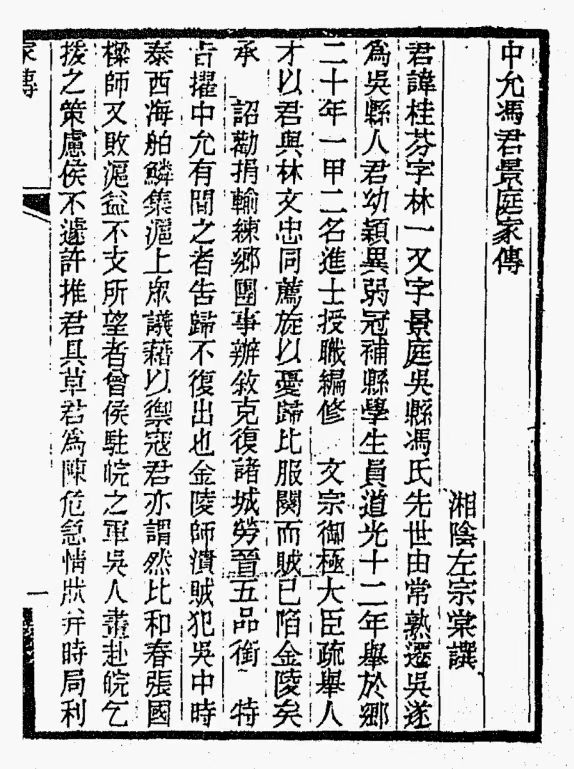 中允馮君景庭家傳
湘陰左宗棠譔
君諱桂芬字林一又字景庭吳縣馮氏先世由常熟遷吳遂
為吳縣人君幼穎異弱冠補縣學生員道光十二年舉於鄉
二十年一甲二名進士授職編修 文宗御極大臣疏舉人
才以君與林文忠同薦旋以憂歸比服闋而賊已陷金陵矣
承 詔勸捐輸練鄉團事辦敘克復諸城勞晉五品銜 特
旨擢中允有間之者告歸不復出也金陵師潰賊犯吳中時
泰西海舶鱗集滬上眾議藉以禦寇君亦謂然比和春張國
樑師又敗滬益不支所望者曾侯駐皖之軍吳人晝赴皖乞
援之策慮侯不遽許推君具草君為陳危急情狀并時局利
家傳
一